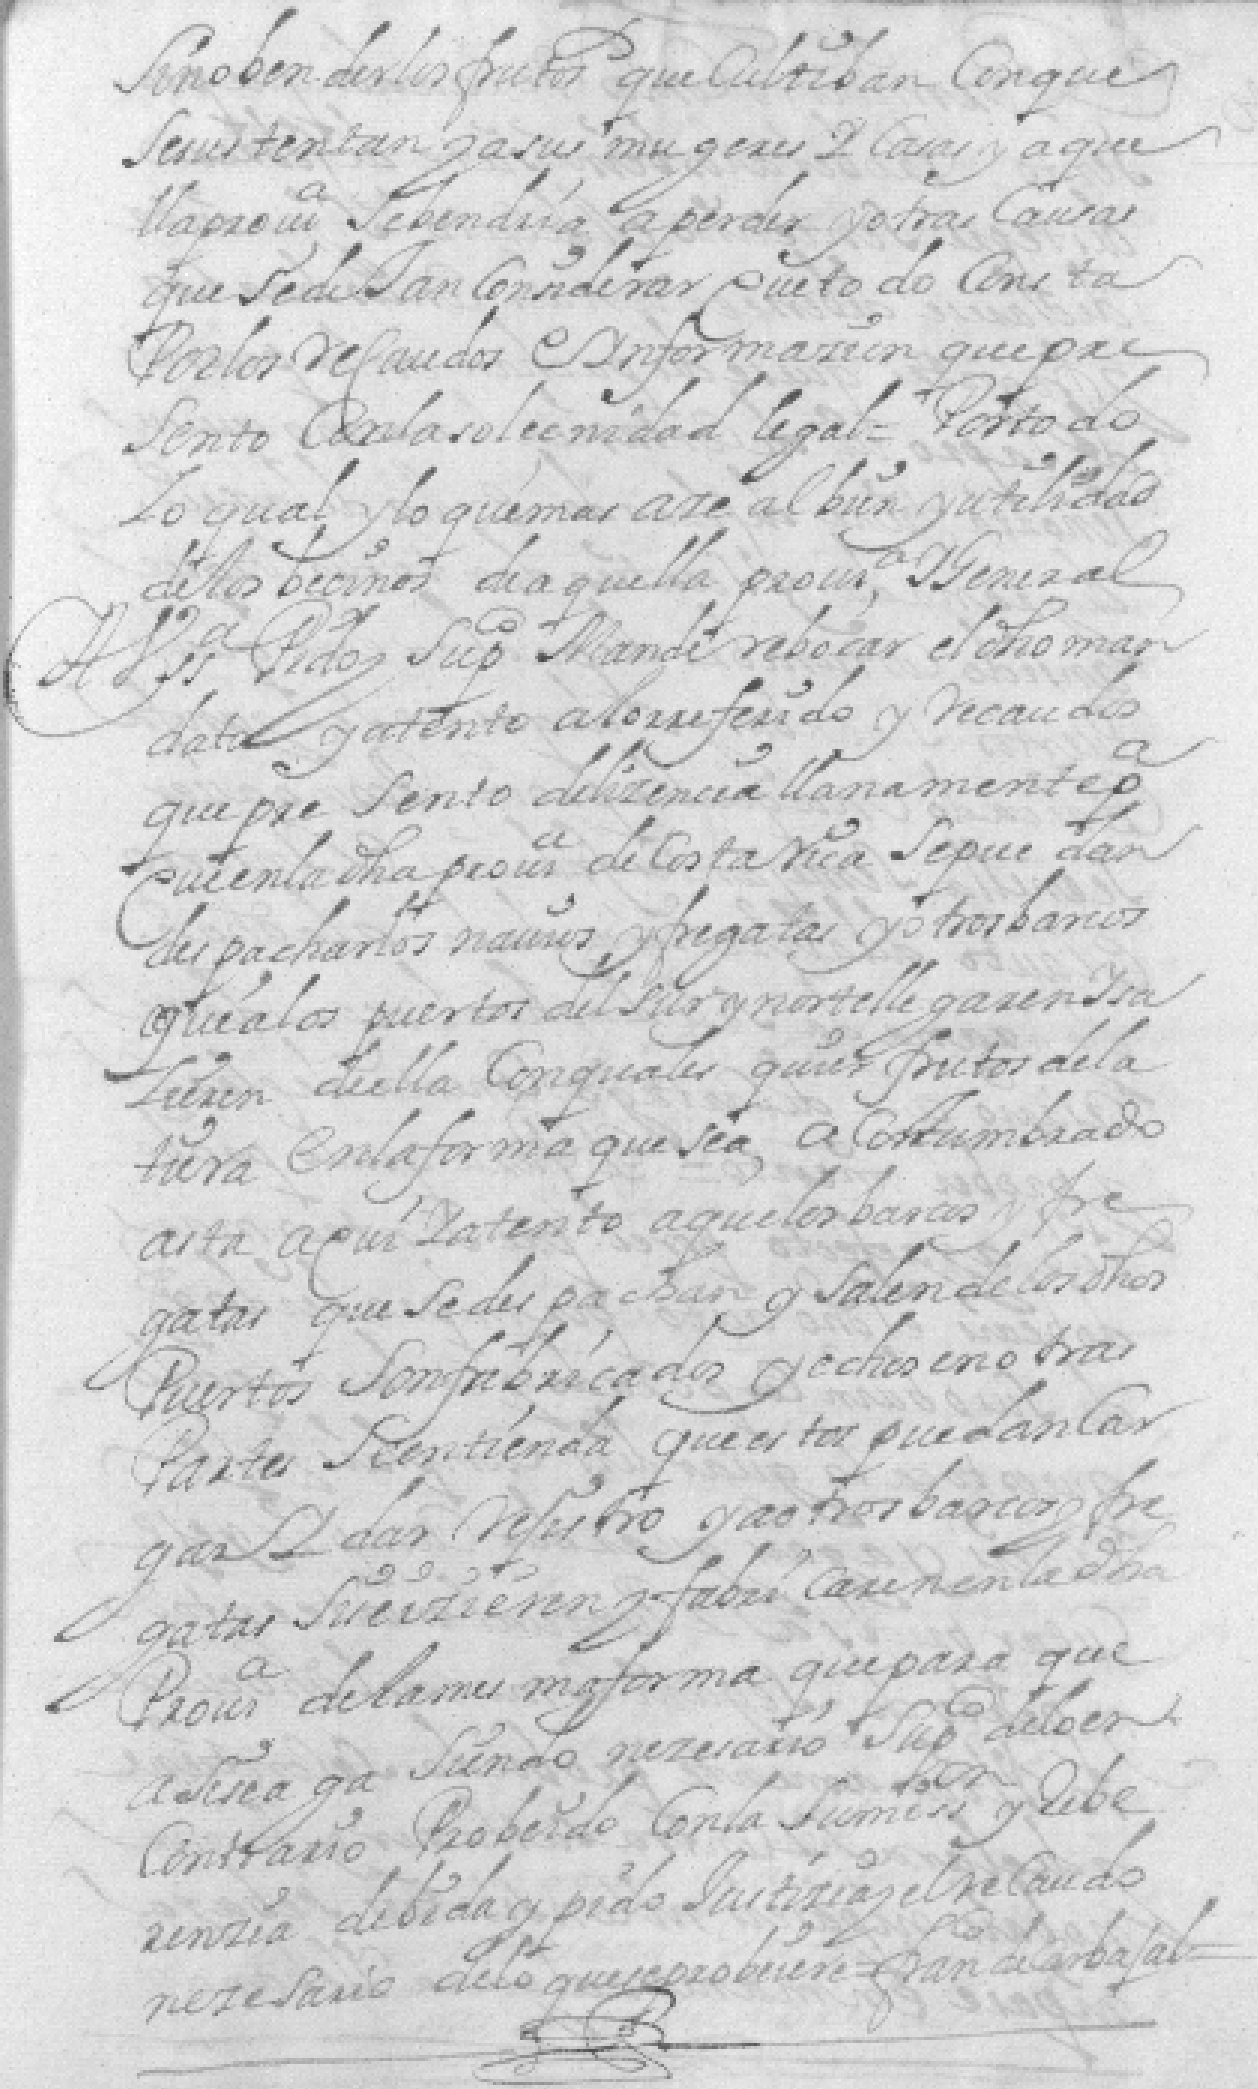 sino benderlos frutos que Cultiban Conque
sesustentan y asus mugeres Y Casas y aque
lla proui^a sebendria aperder y otras Causas
que sede Jan Considerar que todo Consta
Por los recaudos e Ynformazion que pre
sento Conla solecnidad legal = Portodo
Lo qual y lo que mas aze al bien y utilidad
delos becinos de aquella proui^a Y General
A V ss^a Pido y sup^co Mande rebocar el dho man
dato y atento alo rreferido y recaudos
que pre sento delizencia llanamente p^a
que enla dha proui^a de Costa rica se pue dan
despacharlos nauios y fregatas y otros barcos
que alos puertos del sur y norte llegaren Y sa
lieren de ella Conquales quier frutos dela
tierra Enla forma que sea a Costumbrado
asta aqui Y atento aquelos barcos y fre
gatas que se des pachan y salen de los dhos
Puertos son fabricados y echos en o tras
Partes se entienda que estos puedan Car
gar Y dar rejistro y a otros barcos y fre
gatas se izieren y fabri Caren en la dha
Proui^a de la mes ma forma que para que
asi sea ga siendo nezesario sup^co delo en
Contrario Probeido Con la sumis^ion y rebe
renzia debida y pido Justizia y el re Caudo
nezesario delo que se probeiere = fran^co de Carbajal =